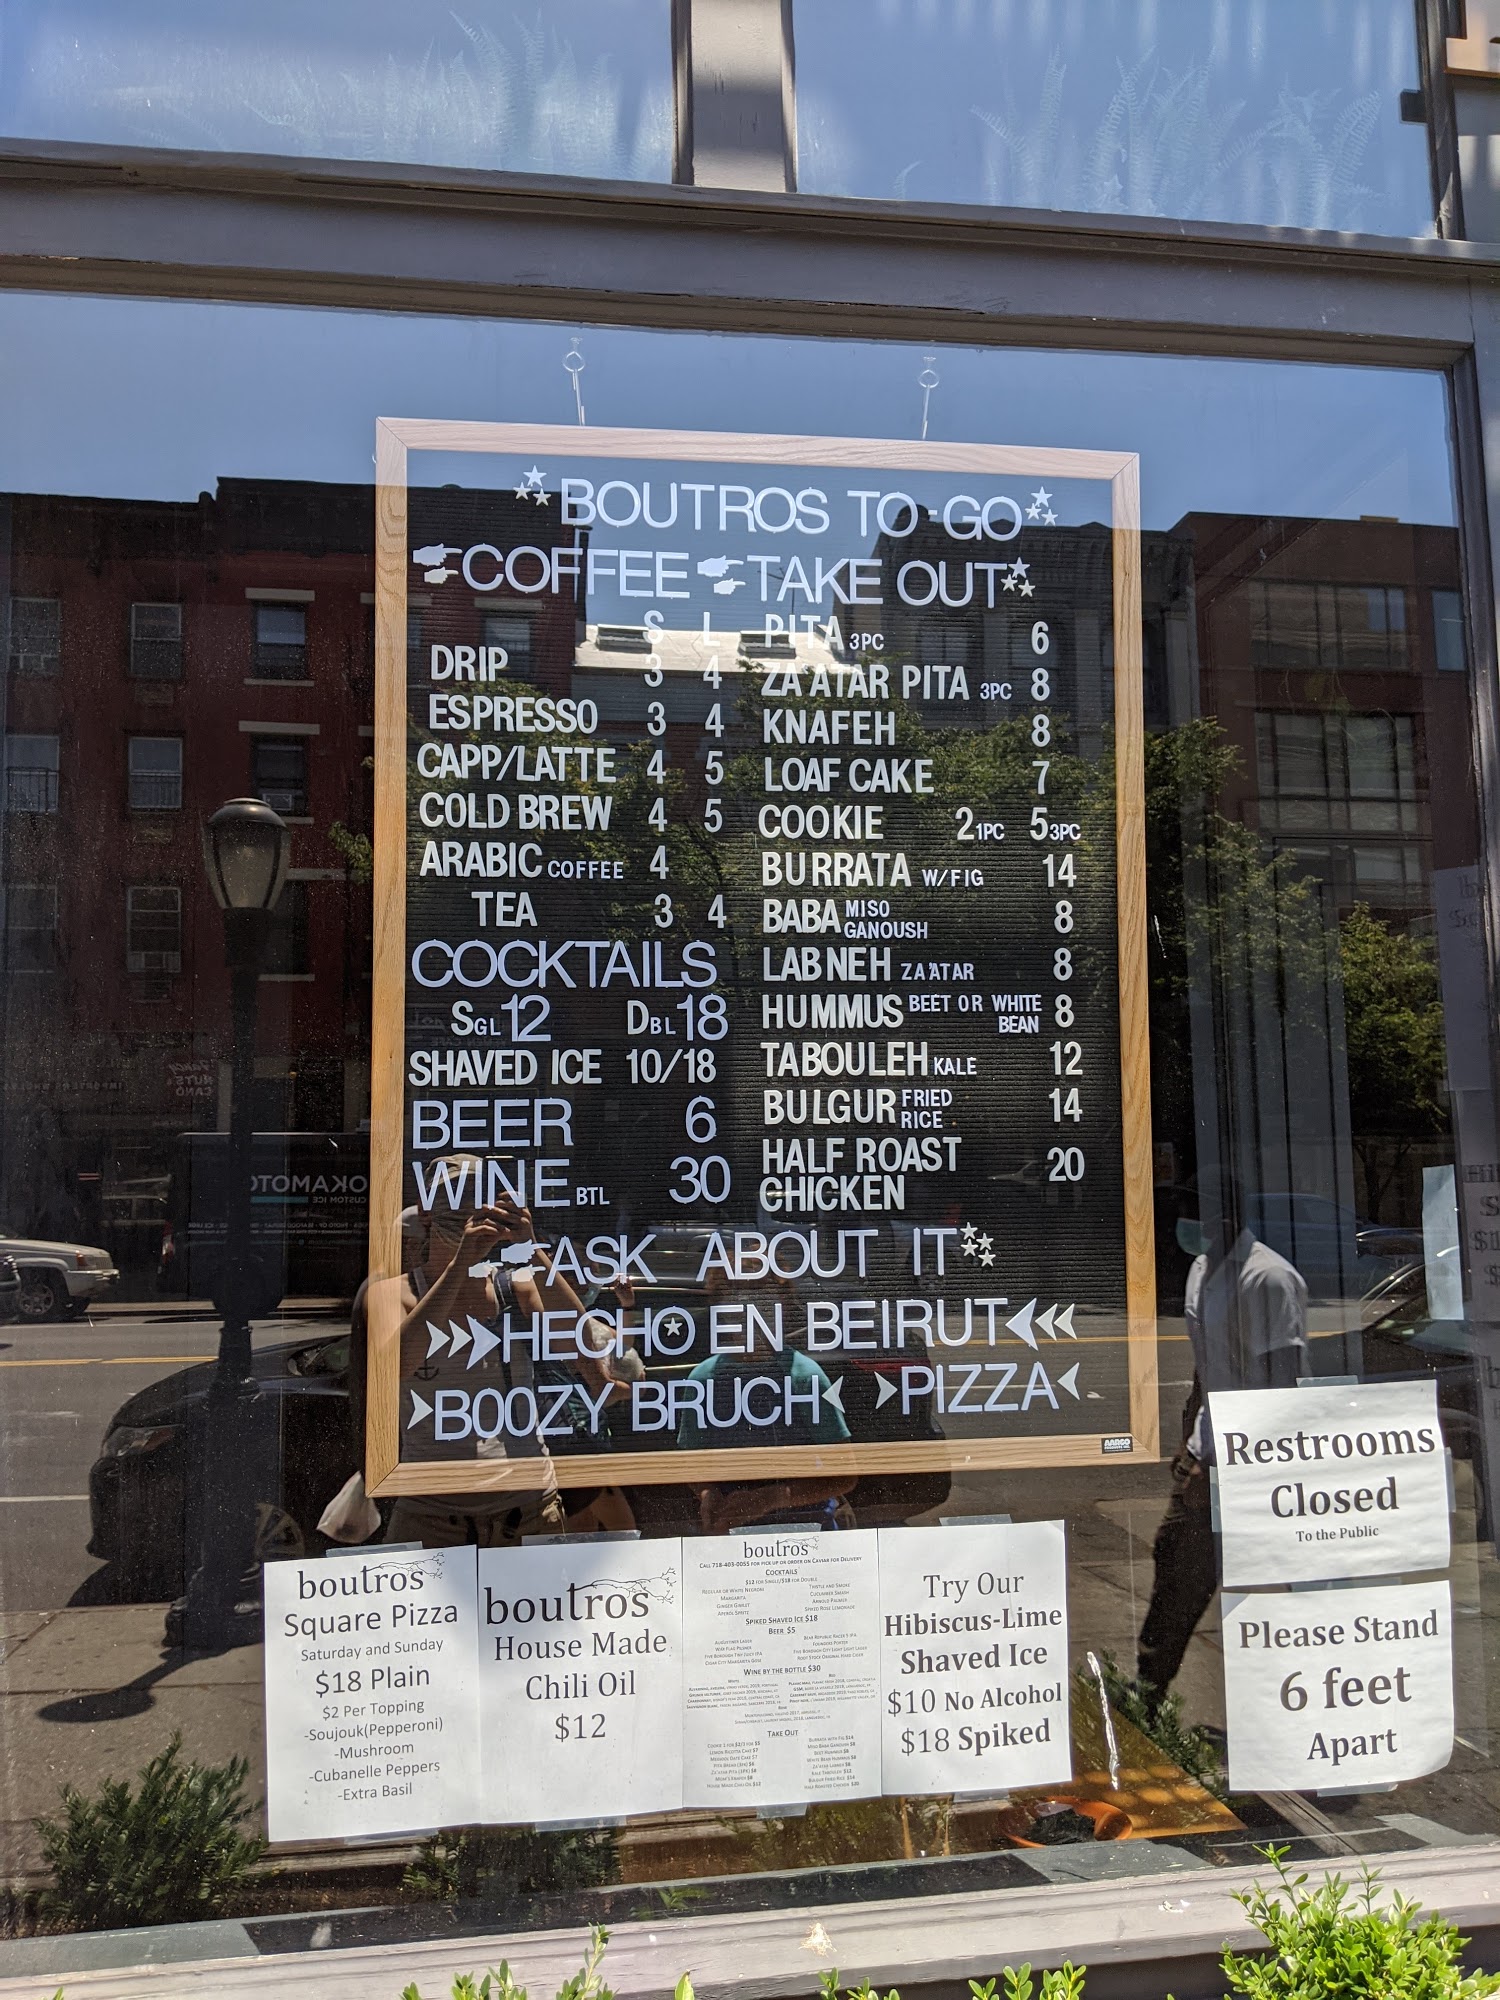 BOUTROS TO-GO
COFFEE TAKE OUT
S L
DRIP 3 4
ESPRESSO 3 4
CAPP/LATTE 4 5
COLD BREW 4 5
ARABIC COFFEE 4
TEA 3 4
COCKTAILS
SGL 12 DBL 18
SHAVED ICE 10/18
BEER 6
WINE BTL 30
PITA 3PC 6
ZA'ATAR PITA 3PC 8
KNAFEH 8
LOAF CAKE 7
COOKIE 2 1PC 5 3PC
BURRATA W/FIG 14
BABA MISO GANOUSH 8
LABNEH ZA'ATAR 8
HUMMUS BEET OR WHITE BEAN 8
TABOULEH KALE 12
BULGUR FRIED RICE 14
HALF ROAST
CHICKEN 20
ASK ABOUT IT
HECHO EN BEIRUT
BOOZY BRUCH PIZZA
boutros
Square Pizza
Saturday and Sunday
$18 Plain
$2 Per Topping
-Soujouk(Pepperoni)
-Mushroom
-Cubanelle Peppers
-Extra Basil
boutros
House Made
Chili Oil
$12
boutros
CALL 718-403-0055 FOR PICK UP OR ORDER ON CAVIAR FOR DELIVERY
COCKTAILS
$12 FOR SINGLE/$18 FOR DOUBLE
SPIKED SHAVED ICE $18
BEER $5
WINE BY THE BOTTLE $30
TAKE OUT
Try Our
Hibiscus-Lime
Shaved Ice
$10 No Alcohol
$18 Spiked
Restrooms
Closed
To the Public
Please Stand
6 feet
Apart